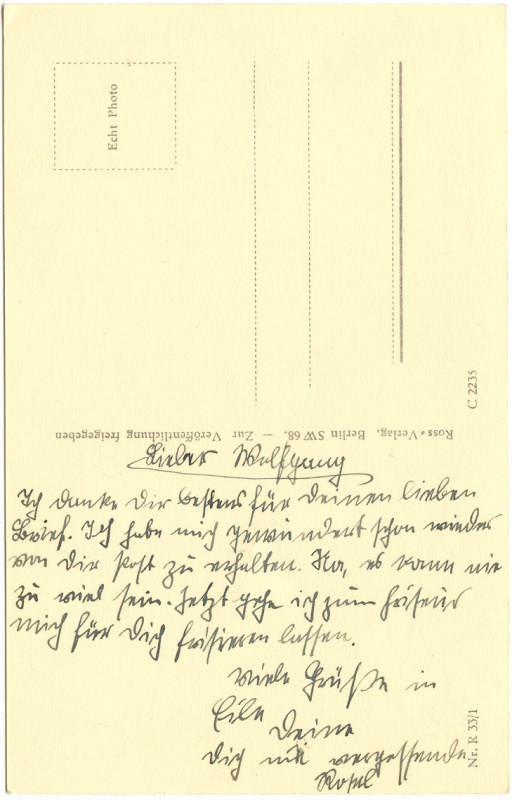 Echt Photo
C 2235
Ross-Verlag, Berlin SW 68. — Zur Veröffentlichung freigegeben
Lieber Wolfgang
Ich danke Dir bestens für Deinen lieben
Brief. Ich habe mich gewundert schon wieder
von Dir Post zu erhalten. Na, es kann nie
zu viel sein. Jetzt gehe ich zum Friseur
mich für Dich frisieren lassen.
Viele Grüße in
Eile
Deine
Dich nie vergessende
Rosel
Nr. R 33/1